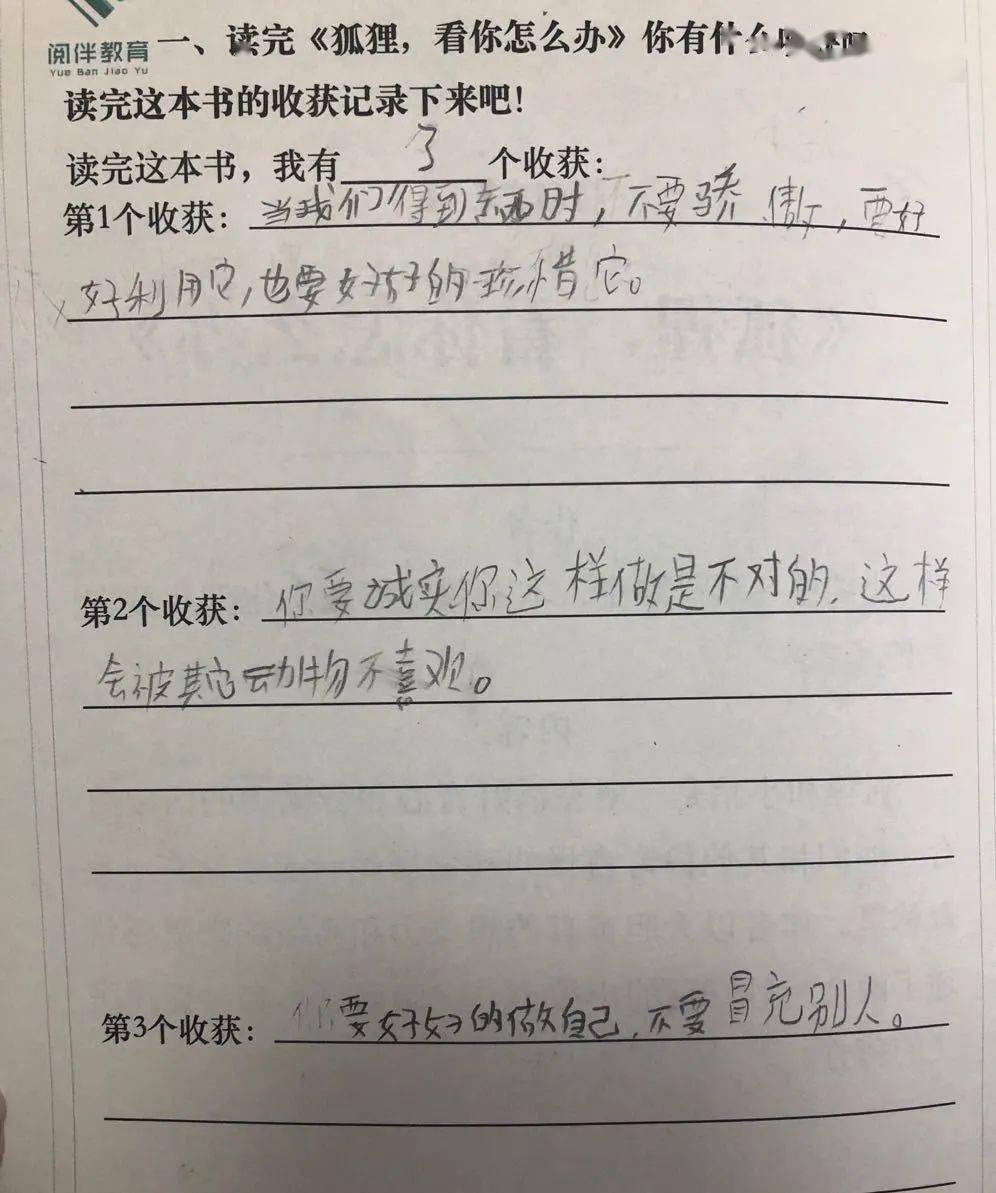 阅伴教育
Yue Ban Jiao Yu
一、读完《狐狸，看你怎么办》你有什么
读完这本书的收获记录下来吧！
读完这本书，我有 3 个收获：
第1个收获：当我们得到东西时，不要骄傲，要好
好利用它，也要好好的珍惜它。
第2个收获：你要诚实你这样做是不对的，这样
会被其它动物不喜观。
第3个收获：你要好好的做自己，不要冒充别人。